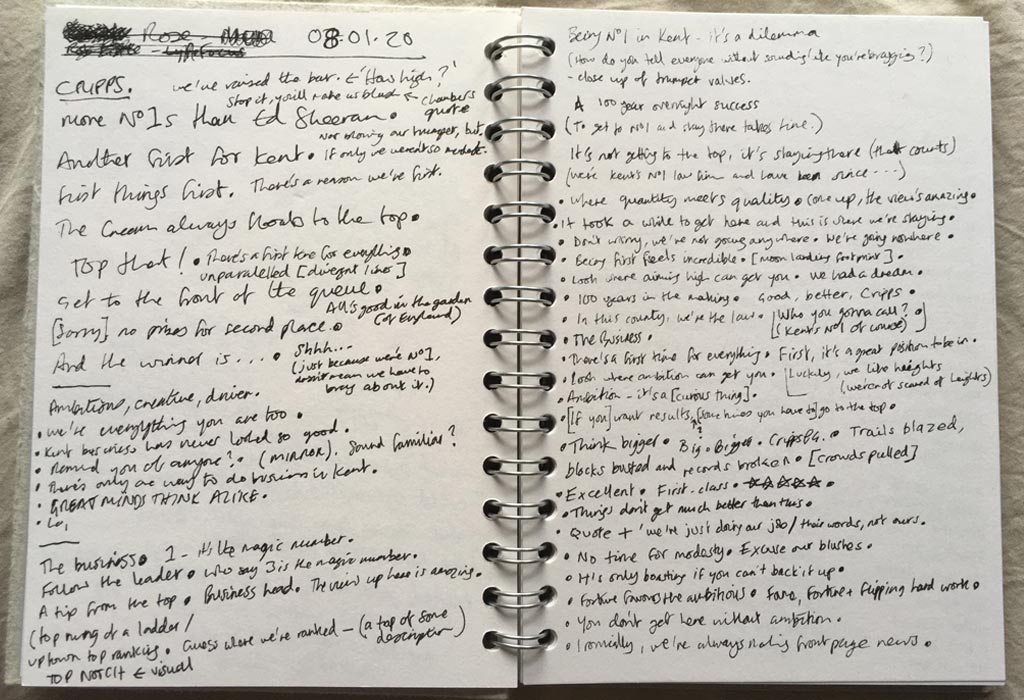 Rose - 08.01.20
CRIPPS. we've raised the bar. ← 'How high?'
stop it, you'll make us blush ← Chambers quote
More Nº1s than Ed Sheeran.
Not blowing our trumpet, but.
Another first for Kent. If only we weren't so modest.
First things first. There's a reason we're first.
The Cream always floats to the top.
Top that! • There's a first time for everything.
unparalleled [divergent lines]
Get to the front of the queue.
All's good in the garden
(of England)
[Sorry] no prizes for second place.
And the winner is.... • Shhh...
(just because we're Nº1,
doesn't mean we have to
brag about it.)
Ambitious, creative, driven.
• We're everything you are too.
• Kent business has never looked so good.
• Remind you of anyone? • (MIRROR). Sound familiar?
• There's only one way to do business in Kent.
• GREAT MINDS THINK ALIKE.
The business. 1 - it's the magic number.
Follow the leader. Who say 3 is the magic number.
A tip from the top. Business head. The view up here is amazing.
(top rung of a ladder/
uptown top ranking. Guess where we're ranked - (a top of some description)
TOP NOTCH ← visual
Being Nº1 in Kent - it's a dilemma
(How do you tell everyone without sounding like you're bragging?)
- close up of trumpet valves.
A 100 year overnight success
(To get to Nº1 and stay there takes time.)
It's not getting to the top, it's staying there (that counts)
(We're Kent's Nº1 law firm and have been since....)
• Where quantity meets quality. Come up, the view's amazing.
• It took a while to get here and this is where we're staying.
• Don't worry, we're not going anywhere. We're going nowhere.
• Being first feels incredible. [moon landing footprint]
• Look where aiming high can get you. We had a dream.
• 100 years in the making. Good, better, Cripps.
• In this county, we're the law. [Who you gonna call?
(Kent's Nº1 of course)]
• The Business.
• There's a first time for everything. First, it's a great position to be in.
• Look where ambition can get you. [Luckily, we like heights
(we're not scared of heights)
• Ambition - it's a [curious thing].
• [If you] want results, [sometimes you have to] go to the top.
• Think bigger. Big. Bigger. Cripps. Trails blazed,
blocks busted and records broken. [crowds pulled]
• Excellent. First-class. ☆☆☆☆☆
• Things don't get much better than this.
• Quote + 'we're just doing our job / their words, not ours.
• No time for modesty. Excuse our blushes.
• It's only boasting if you can't back it up.
• Fortune favours the ambitious. Fame, Fortune + flipping hard work.
• You don't get here without ambition.
• Ironically, we're always making front page news.